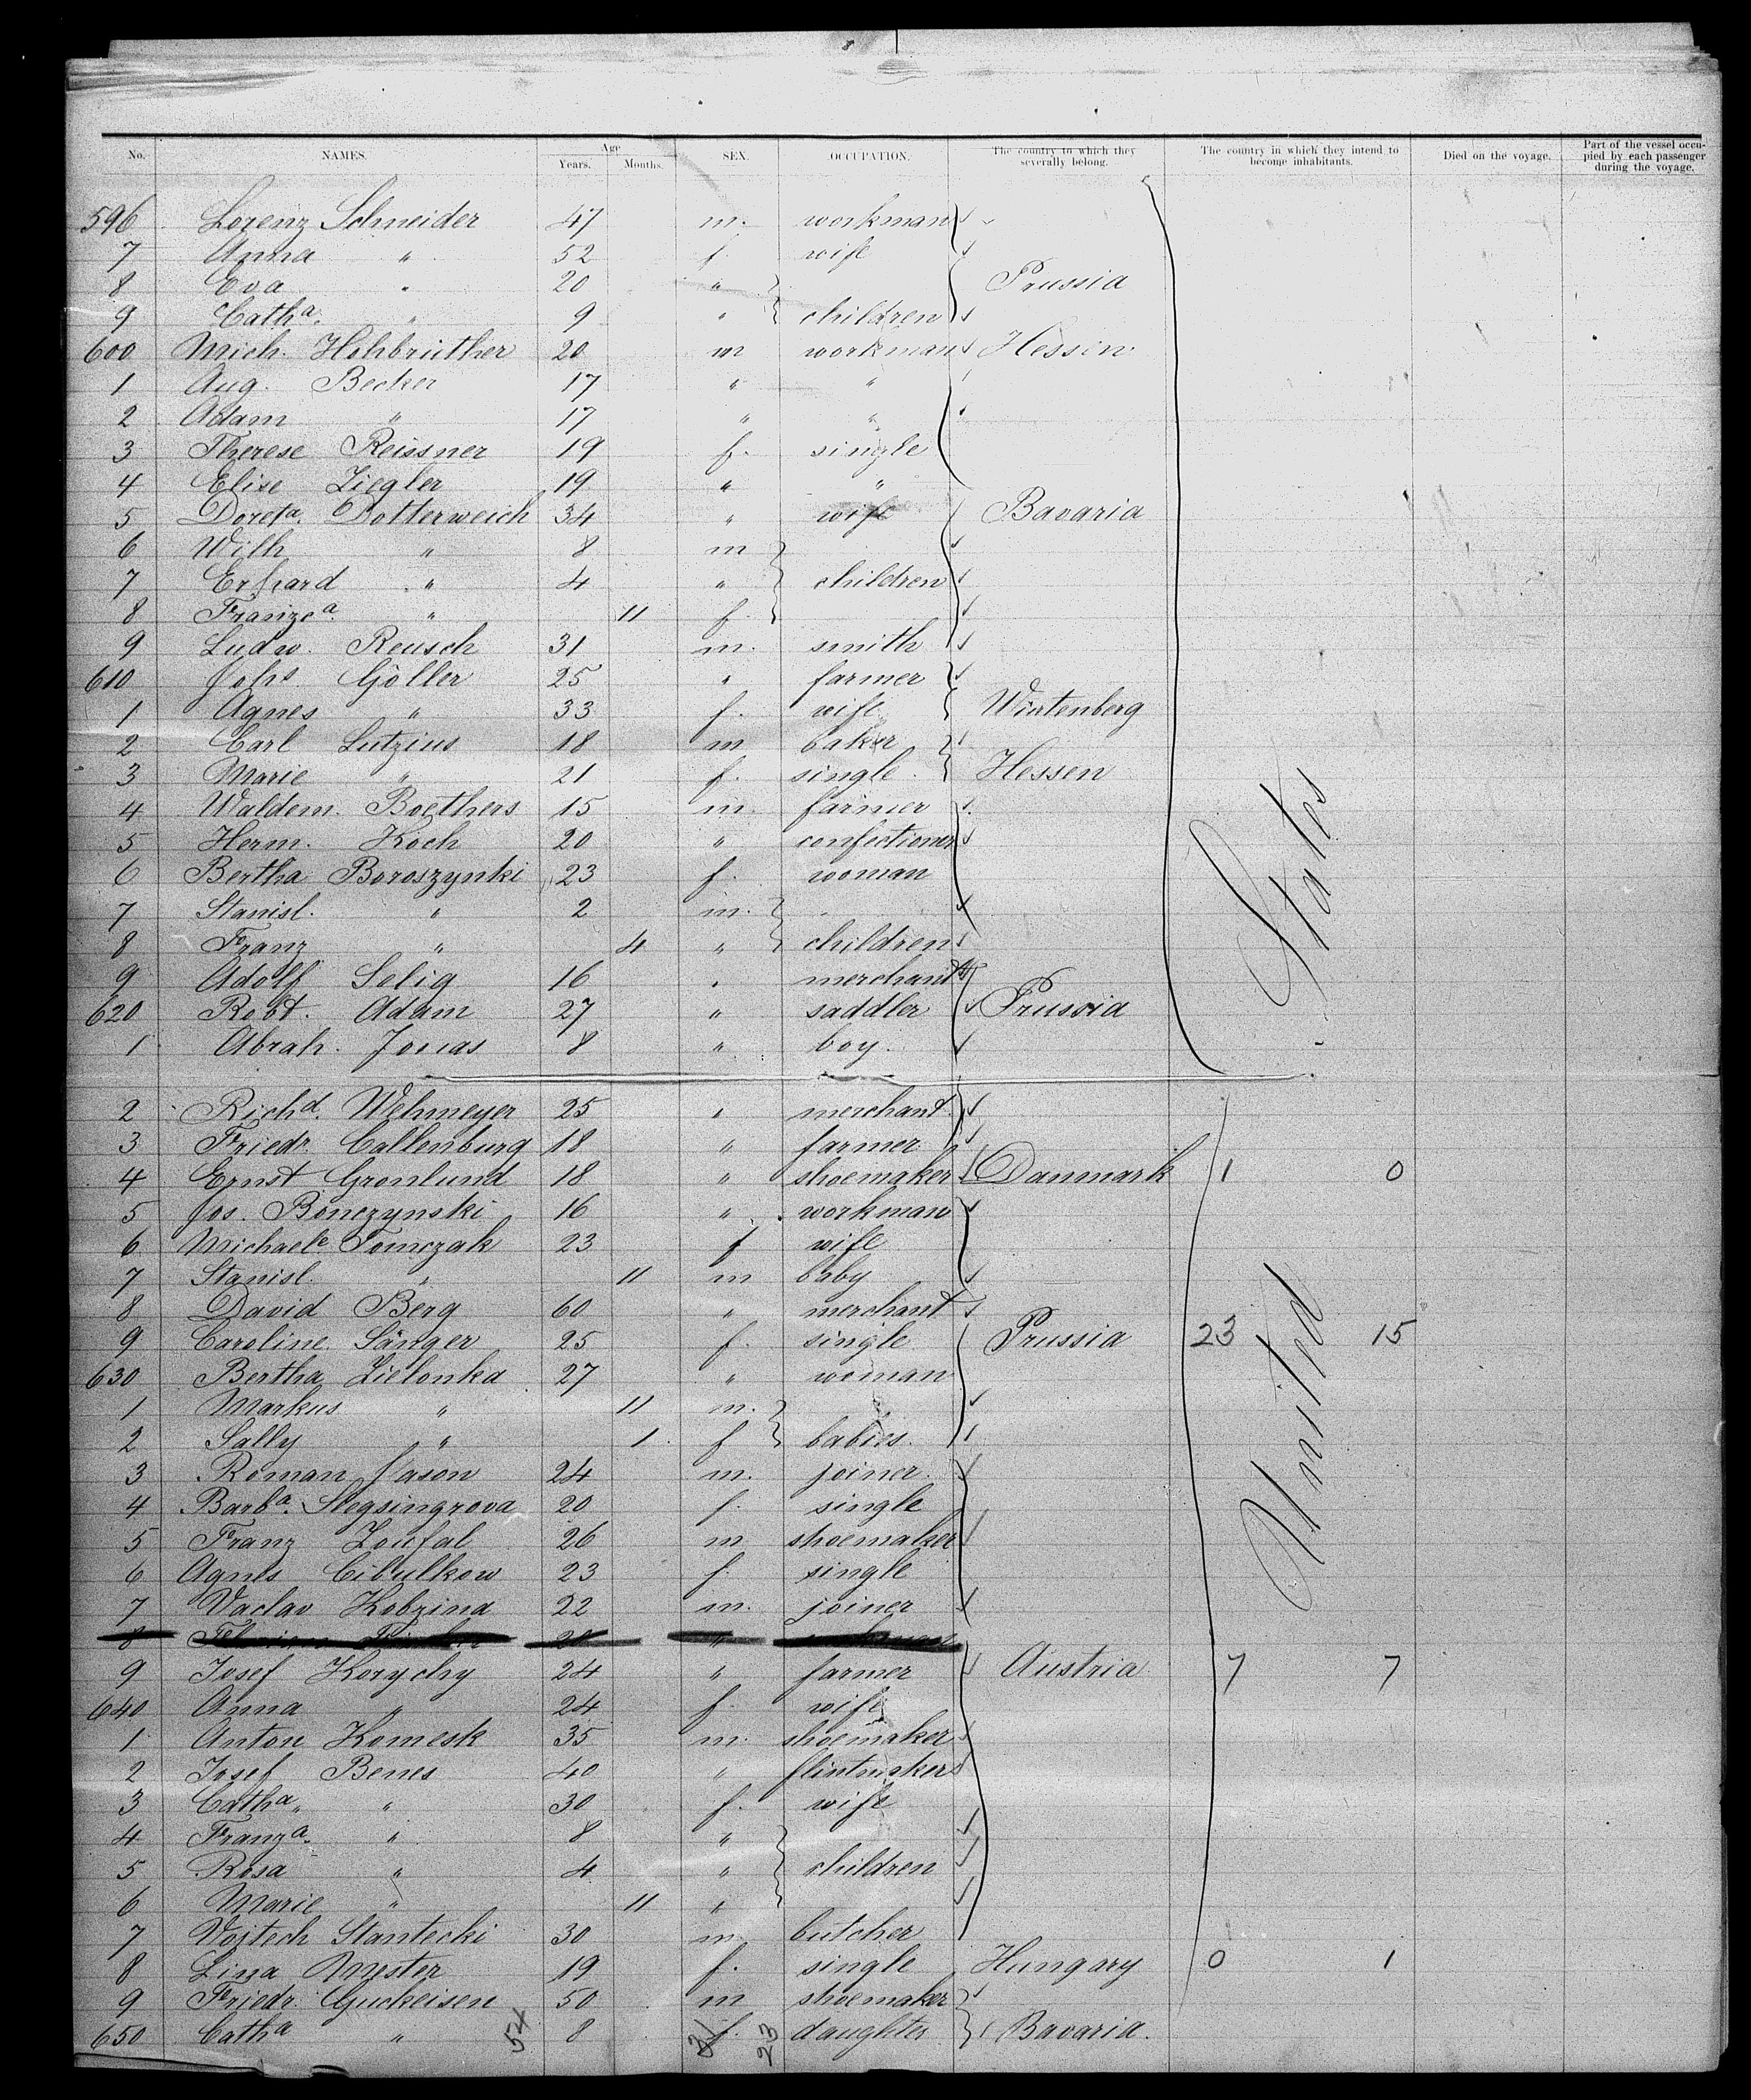 No. NAMES. Age Years. Months. SEX. OCCUPATION. The country to which they severally belong. The country in which they intend to become inhabitants. Died on the voyage. Part of the vessel occupied by each passenger during the voyage.
596 Lorenz Schneider 47 m. workman
7 Anna " 52 f wife
8 Eva " 20 " Prussia
9 Catha. " 9 " children
600 Mich. Hohbrüther 20 m workman Hessen
1 Aug. Becker 17 " "
2 Adam " 17 " "
3 Therese Reissner 19 f. single
4 Elise Ziegler 19 " "
5 Doreta. Dotterweich 34 " wife Bavaria
6 Wilh " 8 m
7 Erhard " 4 " children
8 Franzca. " 11 f.
9 Ludw. Reusch 31 m. smith
610 Johs Göller 25 " farmer
1 Agnes " 33 f. wife Wirtenberg
2 Carl Lutzius 18 m baker
3 Marie " 21 f. single Hessen
4 Waldem. Boethers 15 m. farmer
5 Herm. Koch 20 " confectioner
6 Bertha Boroszynki 23 f. woman
7 Stanisl. " 2 m.
8 Franz " 4 " children
9 Adolf Selig 16 " merchant
620 Robt. Adam 27 " saddler Prussia
1 Abrah. Jonas 8 " boy.
2 Richd. Wehmeyer 25 " merchant
3 Friedr. Callenburg 18 " farmer
4 Ernst Gronlund 18 " shoemaker Danmark 1 0
5 Jos. Bonczynski 16 " workman
6 Michaele Tomczak 23 f wife
7 Stanisl. " 11 m baby
8 David Berg 60 " merchant
9 Caroline Sänger 25 f. single Prussia 23 15
630 Bertha Zielonka 27 " woman
1 Markus " 11 m.
2 Sally " 1 f babies.
3 Roman Jason 24 m. joiner
4 Barba. Slegsingrova 20 f. single
5 Franz Loufal 26 m shoemaker
6 Agnes Cibulkow 23 f. single
7 Vaclav Kobzina 22 m. joiner
8 20 "
9 Josef Korychy 24 " farmer Austria 7 7
640 Anna " 24 f. wife
1 Anton Komesk 35 m. shoemaker
2 Josef Benes 40 " flintmaker
3 Catha. " 30 f. wife
4 Franza. " 8 "
5 Rosa " 4 " children
6 Marie " 11 "
7 Vojtech Stantecki 30 m. butcher
8 Lina Muster 19 f. single Hungary 0 1
9 Friedr. Guckeisen 50 m shoemaker
650 Catha " 8 f. daughter Bavaria.
54 31 23
United States